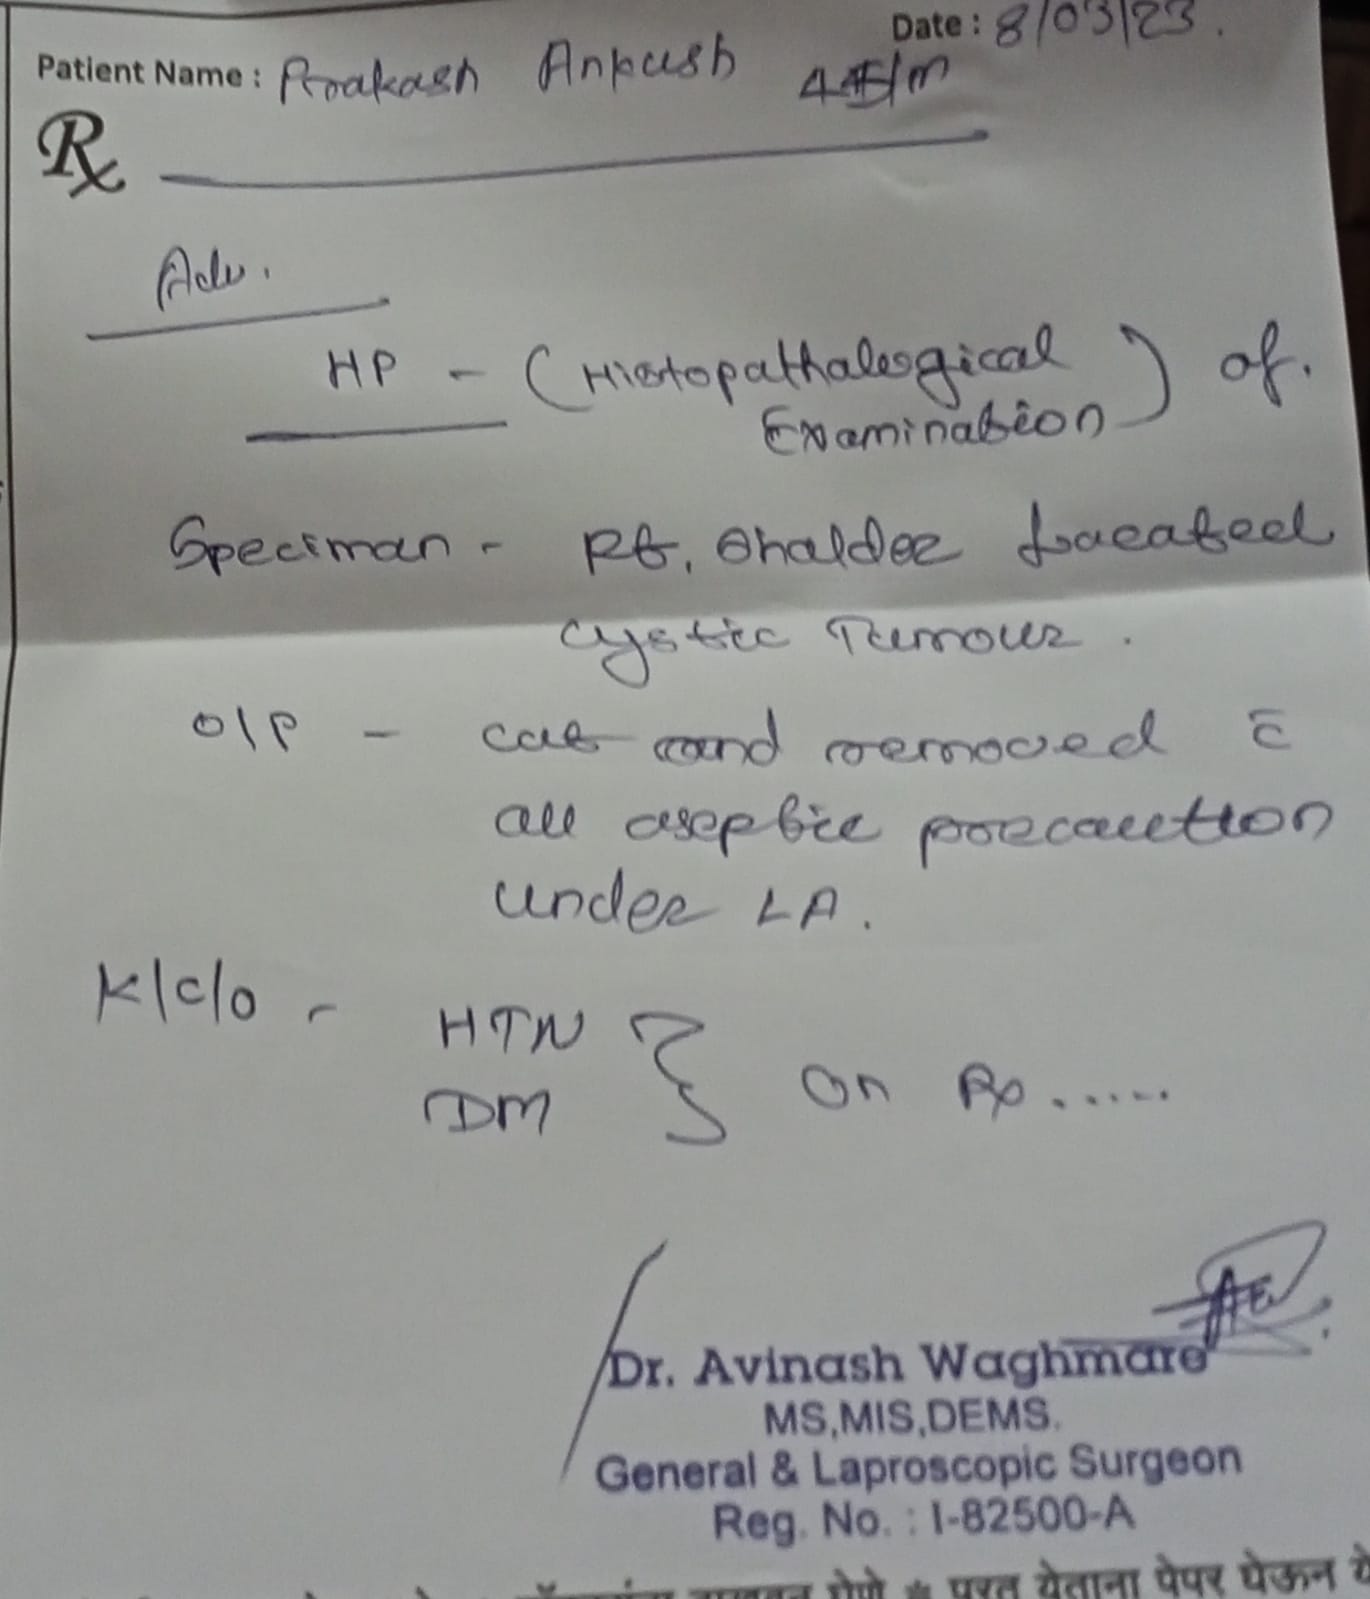 Date : 8/03/23.
Patient Name : Prakash Ankush /m
Rx
Adv.
HP - (Histopathalogical
Examination) of.
Speciman - Rt. Shalder Loacated
cystic Tumour.
O/P - cut and removed c̄
all aseptic precaution
under LA.
K/c/o -
HTN
DM } on Rx......
Dr. Avinash Waghmare
MS,MIS,DEMS.
General & Laproscopic Surgeon
Reg. No. : I-82500-A
परत येताना पेपर घेऊन